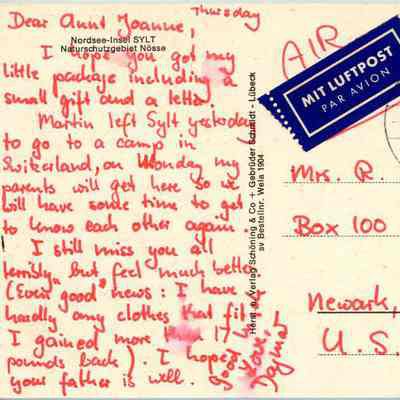 Thursday
Dear Aunt Joanne,
Nordsee-Insel SYLT
Naturschutzgebiet Nösse
I hope you got my
little package including a
small gift and a letter.
Martin left Sylt yesterday
to go to a camp in
Switzerland, on Monday my
parents will get here so we
will have some time to get
to know each other again.
I still miss you all
terribly but feel much better
(Even good news: I have
hardly any clothes that fit
I gained more than 17
pounds back). I hope
your father is well.
Love,
Dagmar
Verlag Schöning & Co + Gebrüder Schmidt - Lübeck
sv Bestellnr. Wela 1904
AIR
MIT LUFTPOST
PAR AVION
Mrs. R.
Box 100
Newark,
U. S.